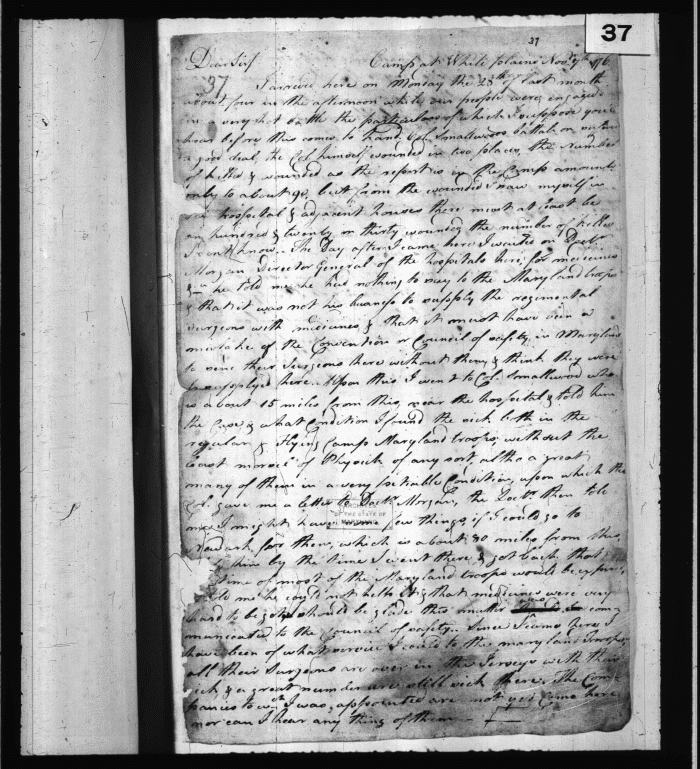 37
37
Dear Sir/ Camp at White plains Nov.r 7th 1776
37
I arrived here on Monday the 28th of last month
about four in the afternoon while our people were engaged
in a very hot battle the particulars of which I suppose you'll
hear before this comes to hand. Col. Smallwoods battalion suffered
a good deal, the Col. himself wounded in two places, the number
of killed & wounded as the report is in the Camp amounts
only to about 90, but from the wounded I saw myself in
the hospital & adjacent houses there must at least be
an hundred & twenty or thirty wounded the number of killed
I cant know. The Day after I came here I waited on Doct.r
Morgan Director General of the hospitals here, for medicines
&ca he told me he had nothing to say to the Maryland troops
& that it was not his business to supply the regimental
surgeons with medicines & that it must have been a
mistake of the Convention or Council of safety in Maryland
to send their Surgeons here without them, & think they were
to be supplyed here. Upon this I went to Col. Smallwood who
is about 15 miles from this, near the hospital & told him
the Case, & what Condition I found the sick both in the
regular & flying Camp Maryland troops, without the
least morcel of Physick of any sort, altho a great
many of them in a very pitiable Condition, upon which the
Col. gave me a letter to Doct.r Morgan, the Doct.r then told
me I might have some few things, if I could go to
Newark for them, which is about 80 miles from this,
time by the time I went there & got back that
time of most of the Maryland troops would be expired,
told me he could not help it & that medicines were very
hard to be got should be glad this matter was com
municated to the Council of safety. Since I came here I
have been of what service I could to the maryland troops,
all their Surgeons are over in the Jerseys with their
sick & a great number are still sick there. The Com
panies to wch I was appointed are not yet come here
nor can I hear any thing of them.
ARCHIVES
OF THE STATE OF
MARYLAND